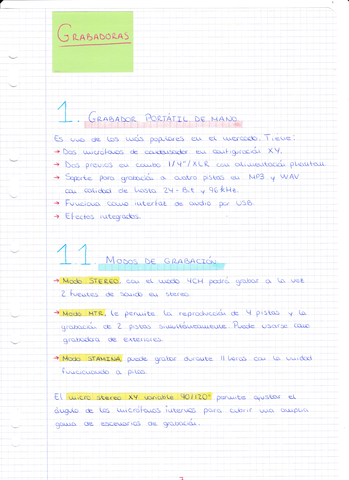 GRABADORAS
1. GRABADOR PORTÁTIL DE MANO
Es uno de los más populares en el mercado. Tiene:
→ Dos micrófonos de condensador en configuración XY.
→ Dos previos en combo 1/4"/XLR con alimentación phantom.
→ Soporte para grabación a cuatro pistas en MP3 y WAV
con calidad de hasta 24-Bit y 96kHz.
→ Funciona como interfaz de audio por USB.
→ Efectos integrados.
1.1. MODOS DE GRABACIÓN
→ Modo STEREO, con el modo 4CH podrá grabar a la vez
2 fuentes de sonido en stereo.
→ Modo MTR, le permite la reproducción de 4 pistas y la
grabación de 2 pistas simultáneamente. Puede usarse como
grabadora de exteriores.
→ Modo STAMINA, puede grabar durante 11 horas con la unidad
funcionando a pilas.
El micro stereo XY variable 90/120° permite ajustar el
ángulo de los micrófonos internos para cubrir una amplia
gama de escenarios de grabación.